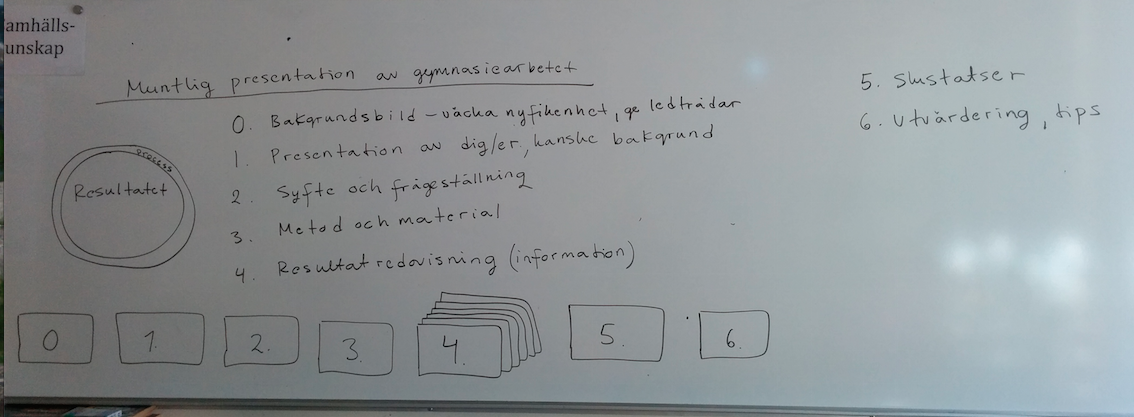 amhälls-
unskap
Muntlig presentation av gymnasiearbetet
0. Bakgrundsbild - väcka nyfikenhet, ge ledtrådar
1. Presentation av dig/er, kanske bakgrund
2. Syfte och frågeställning
3. Metod och material
4. Resultatredovisning (information)
5. Slustatser
6. Utvärdering, tips
process
Resultatet
0 1. 2. 3. 4. 5. 6.